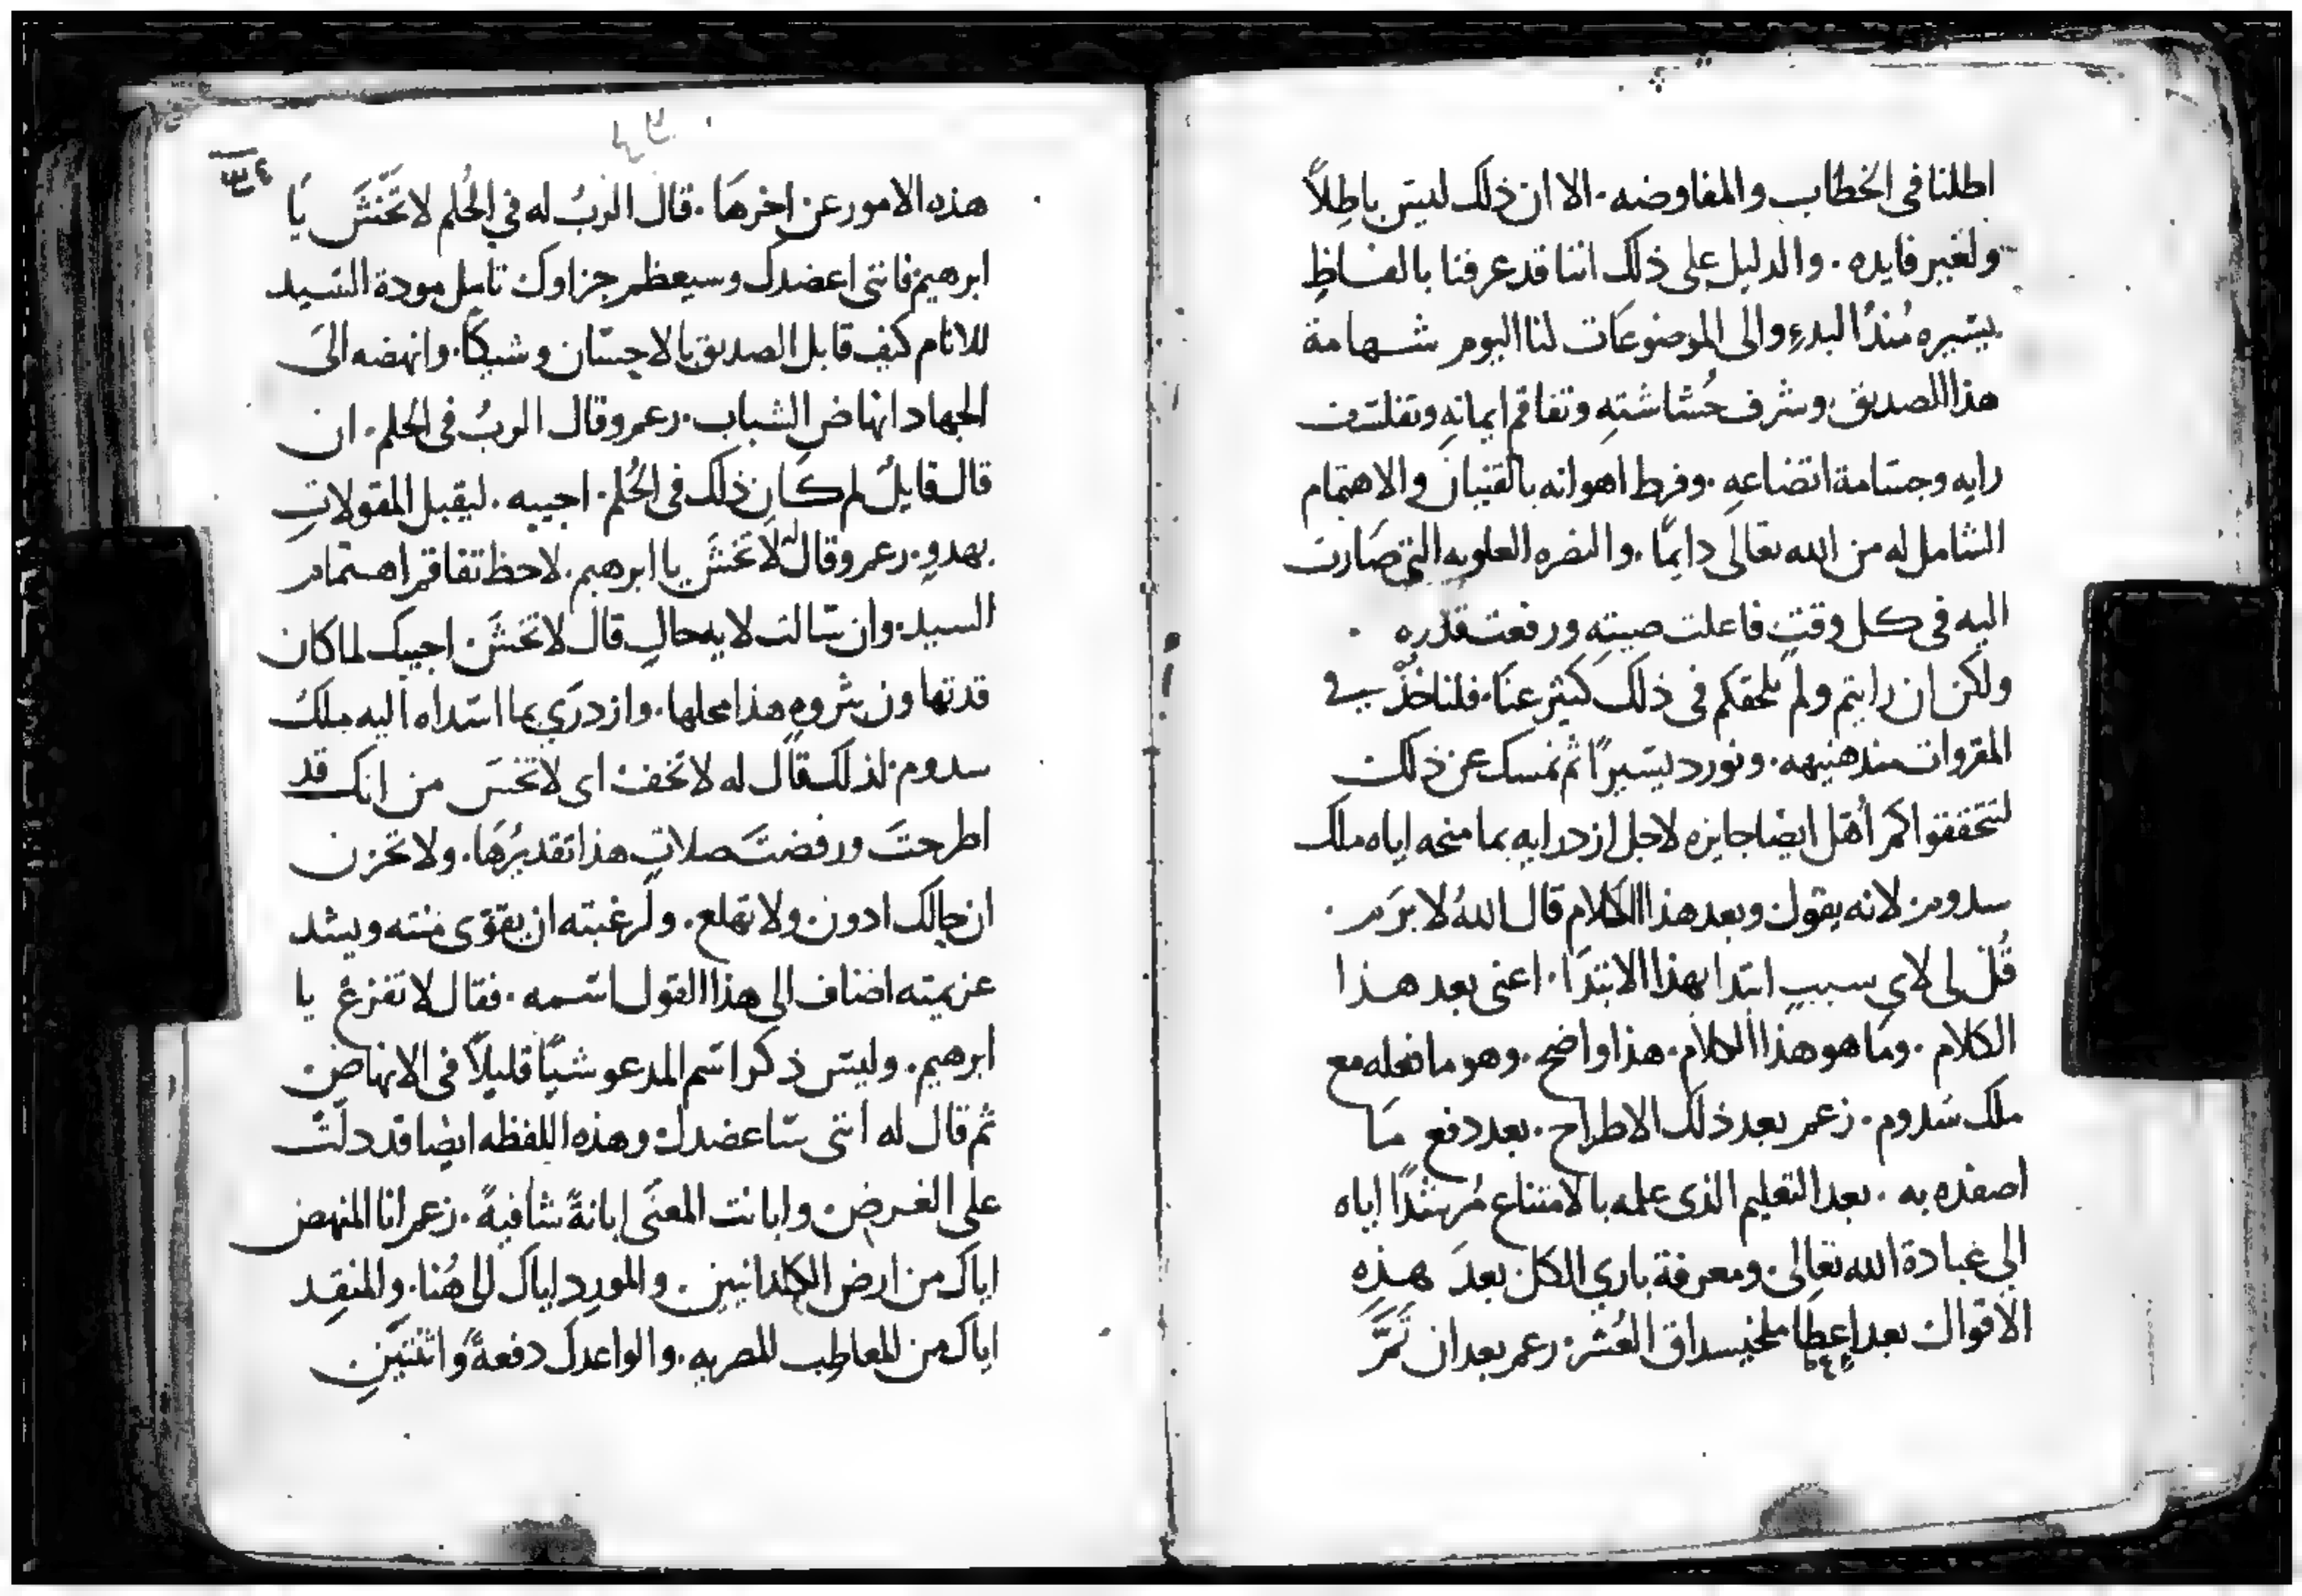 اطلنا فى الخطاب والمفاوضه ٠ الا ان ذلك ليس باطِلاً
ولغير فايده ٠ والدليل على ذلك اننا قد عرفنا بالفاظِ
يسيره مُنذُ البدءِ والى الموضوعَات لنا اليوم شهامة
هذا الصديق وشرف حُشاشتهِ وتفاقم ايمانهِ وتفلسف
رايه وجسامة اتضاعهِ ٠ وفرط اهوانه بالقنيان والاهتمام
الشامل له من الله تعالى دايمًا ٠ والنصره العلويه التى صَارت
اليه فى كل وقتٍ فاعلت صيتهِ ورفعت قدره ٠
ولكن ان رايتم ولم يلحقكم فى ذلك كثير عنَا ٠ فلناخُذ فى
المقروات منذ هنيهه ٠ ونورد يسيرًا ثم نمسك عن ذلك
لتتحققوا كم أهل ايضا جايزه لاجل ازدرايه بما منحه اياه ملك
سدوم ٠ لانه يقول وبعد هذا الكلام قال اللهُ لابرَم ٠
قُل لى لاي سببٍ ابتدا بهذا الابتدَا ٠ اعنى بعد هذا
الكلام ٠ ومَا هو هذا الكلام ٠ هذا واضح ٠ وهو ما فعله مع
ملك سَدوم ٠ زعم بعد ذلك الاطراح ٠ بعد دفع مَا
اصفده به ٠ بعد التعليم الذى علمه بالامتناع مُرشدًا اياه
الي عبادة الله تعالى ومعرفة باري الكل بعدَ هذهِ
الاقوال بعد اعطا ملخيسداق العُشر ٠ زعم بعد ان تَمَّر
٣٤
هذه الامور عن اخرهَا ٠ قال الربُ له في الحُلم لا تَخَشَ يَا
ابرهيم فاننى اعضدك وسيعظم جزاوك تامل مودة السيد
للانام كيف قابل الصديق بالاحسَان وشيكًا ٠ وانهضه الىَ
الجهاد انهاض الشباب ٠ زعم وقال الربُ فى الحلم ٠ ان
قال قايلٌ لم كَان ذلك فى الحُلم ٠ اجيبه ٠ ليقبل المقولاتِ
بهدوٍ ٠ زعم وقال له لا تخشَ يا ابرهيم ٠ لاحظ تفاقم اهتمام
السيد ٠ وان سَالت لايه حالٍ قال لا تخشَ ٠ اجيبك لما كان
قد تهاون بثروهٍ هذا محلها ٠ وازدرَي بما اسَداه اليه ملكُ
سدوم لذلك قال له لا تخف اى لا تخشَ من انك قد
اطرحتَ ورفضتَ صلاتٍ هذا تقديُرهَا ٠ ولا تحزن
ان حالك ادون ٠ ولا تهلع ٠ ولرغبته ان يقوى منته ويشد
عزيمته اضاف الى هذا القول اسَمه ٠ فقال لا تفزعْ يا
ابرهيم ٠ وليس ذكر اسَم المدعو شيًا قليلاً فى الانهاض
ثم قال له اننى سَاعضدك وهذه اللفظه ايضا قد دلَتْ
على الغرض وابانت المعنَى ابانةً شافيةً ٠ زعم انا المنهض
اياكَ من ارض الكلدانيين ٠ والمورد اياك الى هُنا ٠ والمنقِد
اياكَ من المعاطِب المصريه ٠ والواعدكَ دفعةً واثنتَينِ